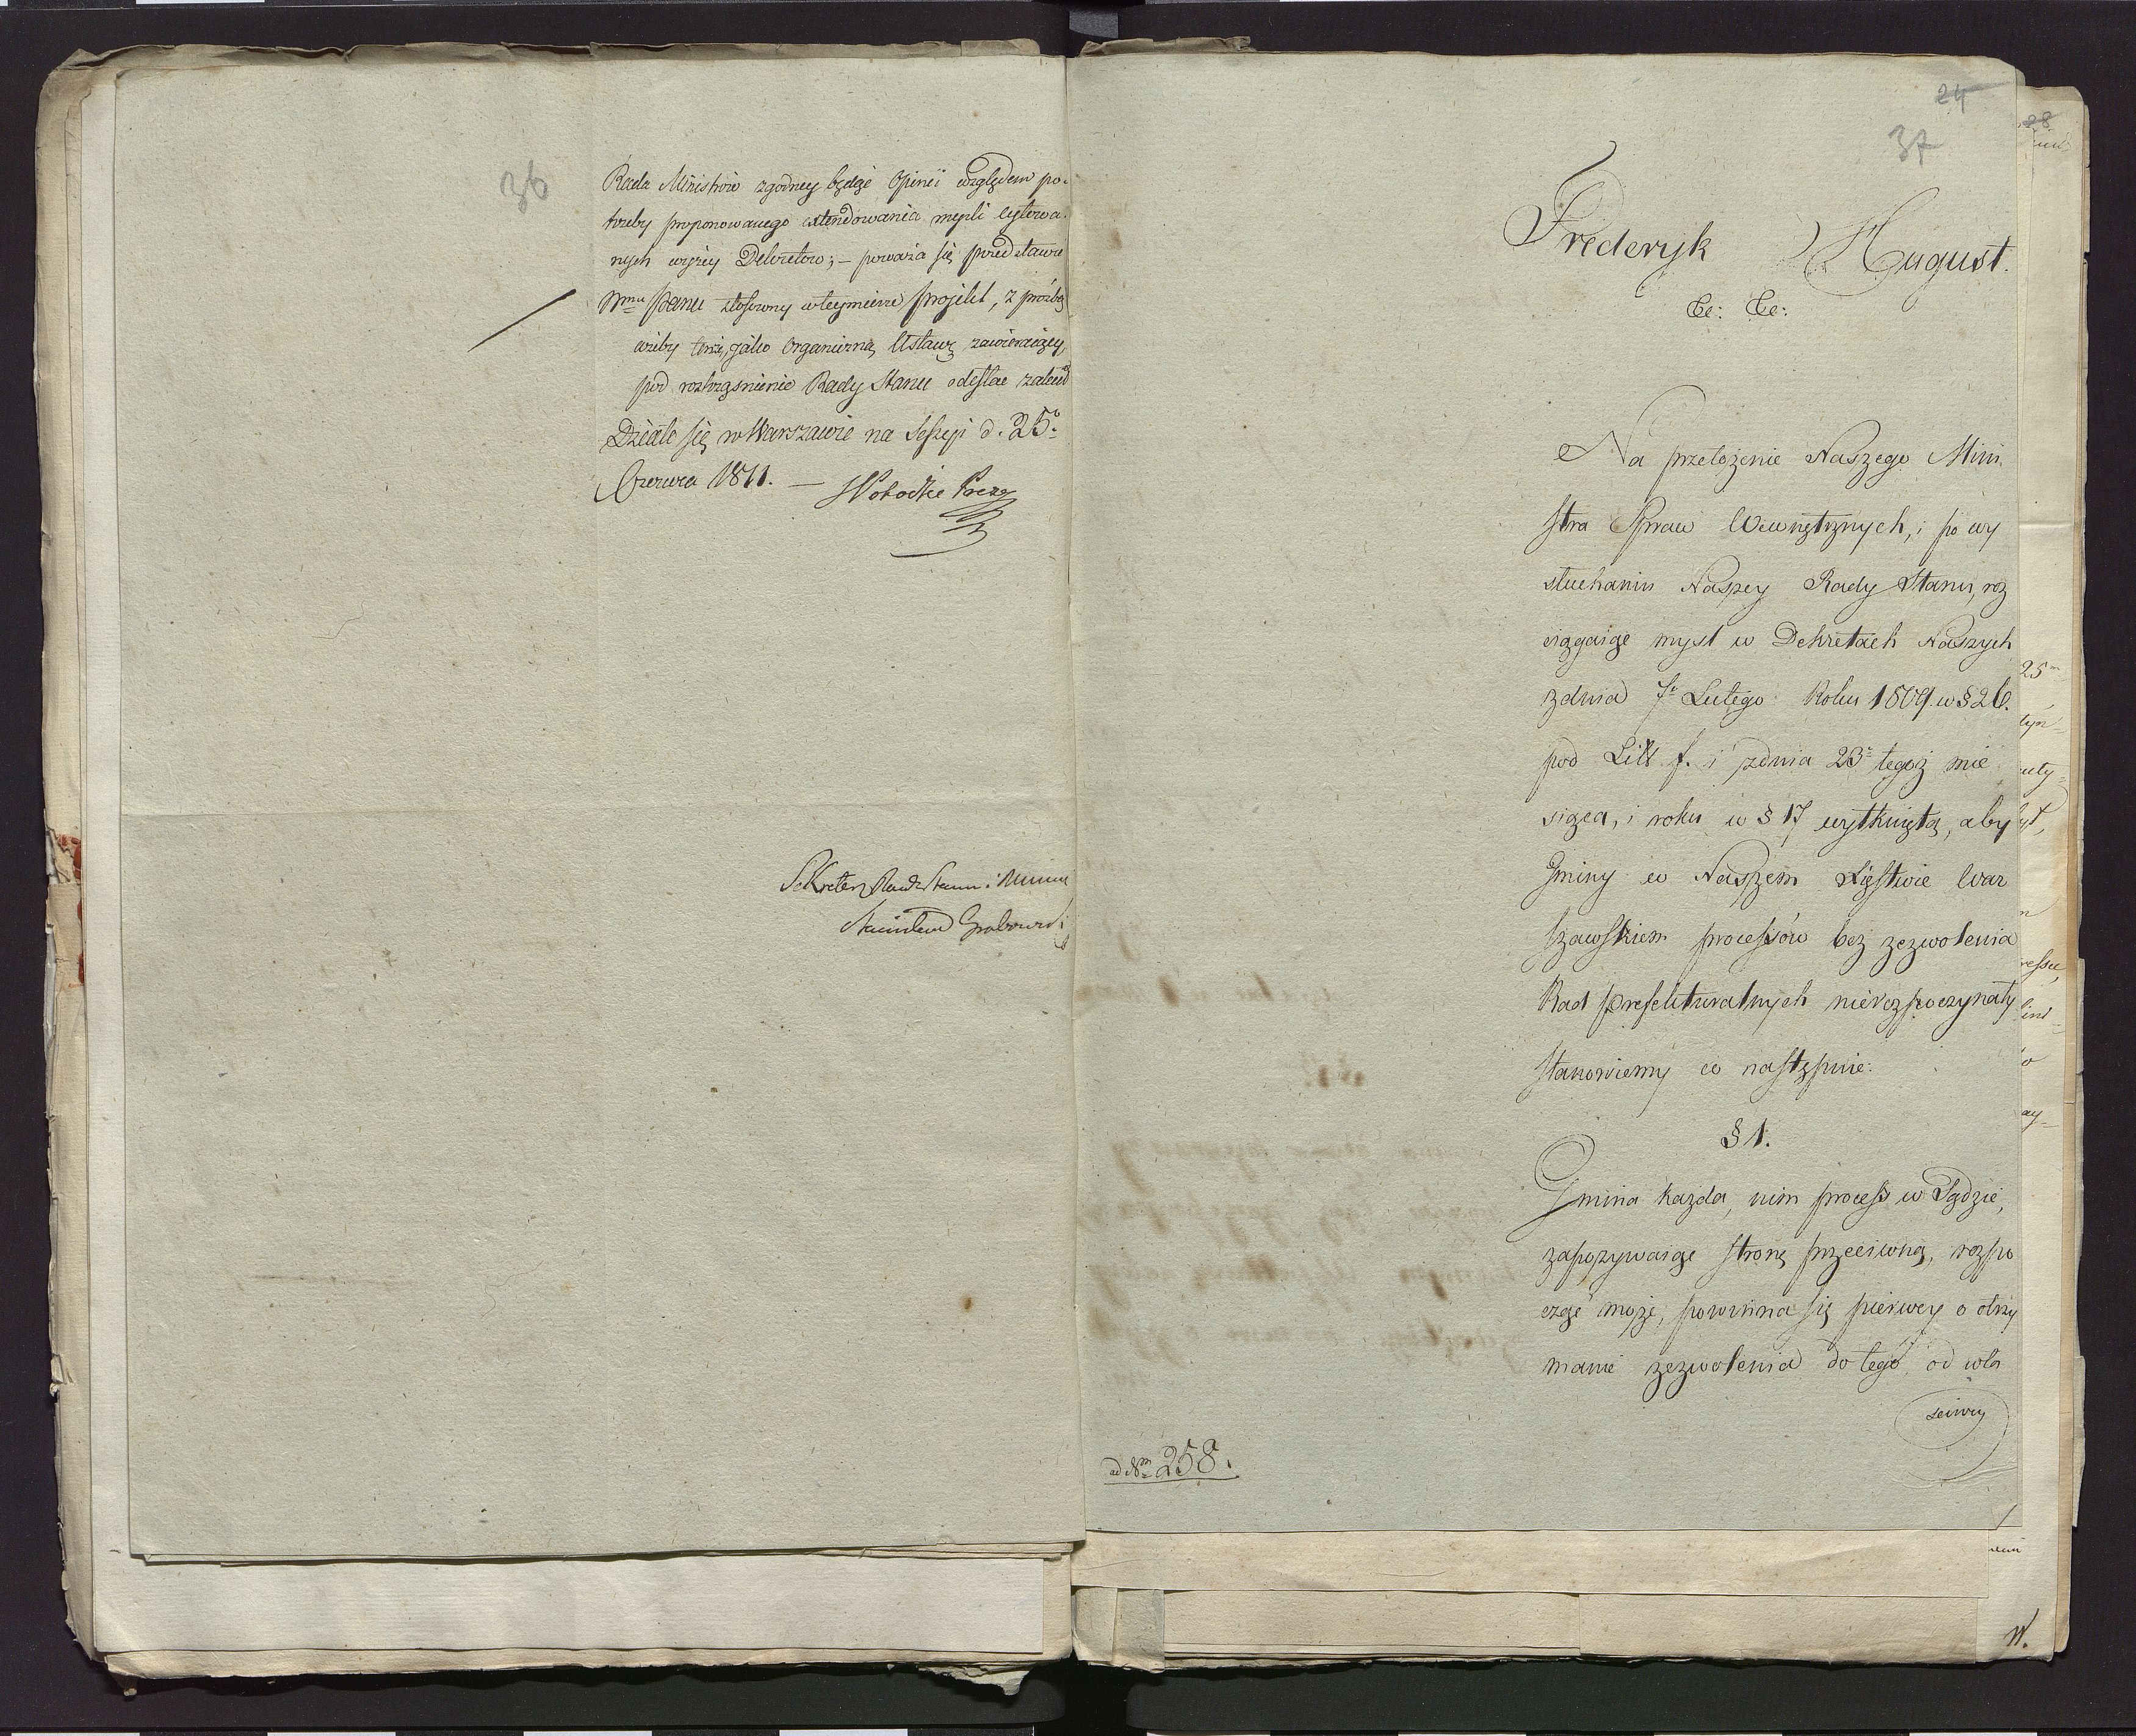 36
Rada Ministrów zgodney będąc Opinii względem po-
trzeby proponowanego extendowania myśli cytowa-
nych wyżey Dekretów; – poważa się przedstawić
Nmu Panu stosowny w tey mierze projekt, z prośbą
ażeby tenże, jako Organiczną Ustawę zawieraiący,
pod roztrząśnienie Rady Stanu odesłać zalecił
Działo się w Warszawie na Sessyi d. 25º
Czerwca 1811. – Potocki Prezes
Sekretarz Rady Stanu i Minist
Stanisław Grabowski
24
37
Frederyk August.
Etc: Etc:
Na przełożenie Naszego Mini
stra Spraw Wewnętrznych, i po wy
słuchaniu Naszey Rady Stanu, roz
ciągaiąc myśl w Dekretach Naszych
z dnia 7º Lutego Roku 1809. w § 26.
pod Litt f. i z dnia 23º tegoż mie
siąca, i roku w § 17 wytkniętą, aby
Gminy w Naszem Xięstwie War
szawskiem processów bez zezwolenia
Rad Prefekturalnych nierozpoczynały
stanowiemy co następuie:
§ 1.
Gmina każda, nim process w Sądzie,
zapozywaiąc stronę przeciwną, rozpo
cząć może, powinna się pierwey o otrzy
manie zezwolenia do tego, od wła
sciwey
ad Nm 258.